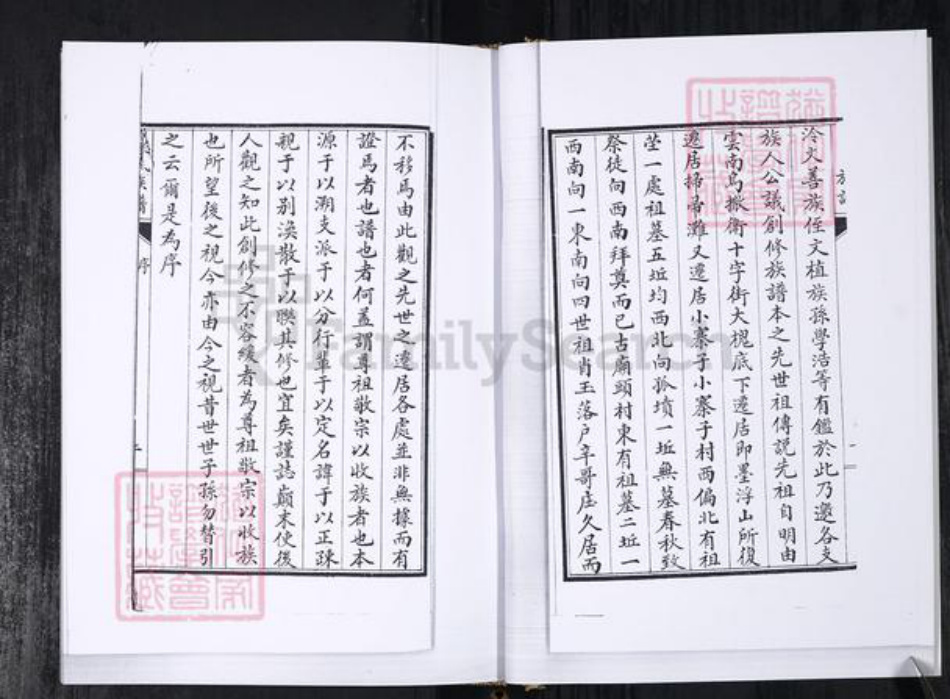 泠文善族侄文植族孫學浩等有鑑於此乃邀各支
族人公議創修族譜本之先世祖傳說先祖自明由
雲南烏撒衛十字街大槐底下遷居即墨浮山所復
遷居掃帚灘又遷居小寨子小寨子村西偏北有祖
塋一處祖墓五坵均西北向孤墳一坵無墓春秋致
祭徒向西南拜奠而已古廟頭村東有祖墓二坵一
西南向一東南向四世祖肖玉落户辛哥庄久居而
不移焉由此觀之先世之遷居各處並非無據而有
證焉者也譜也者何蓋謂尊祖敬宗以收族者也本
源于以溯支派于以分行輩于以定名諱于以正疎
親于以别渙散于以聯其修也宜矣謹誌顛末使後
人觀之知此創修之不容緩者為尊祖敬宗以收族
也所望後之視今亦由今之視昔世世子孫勿替引
之云爾是為序
氏族譜
序
FamilySearch